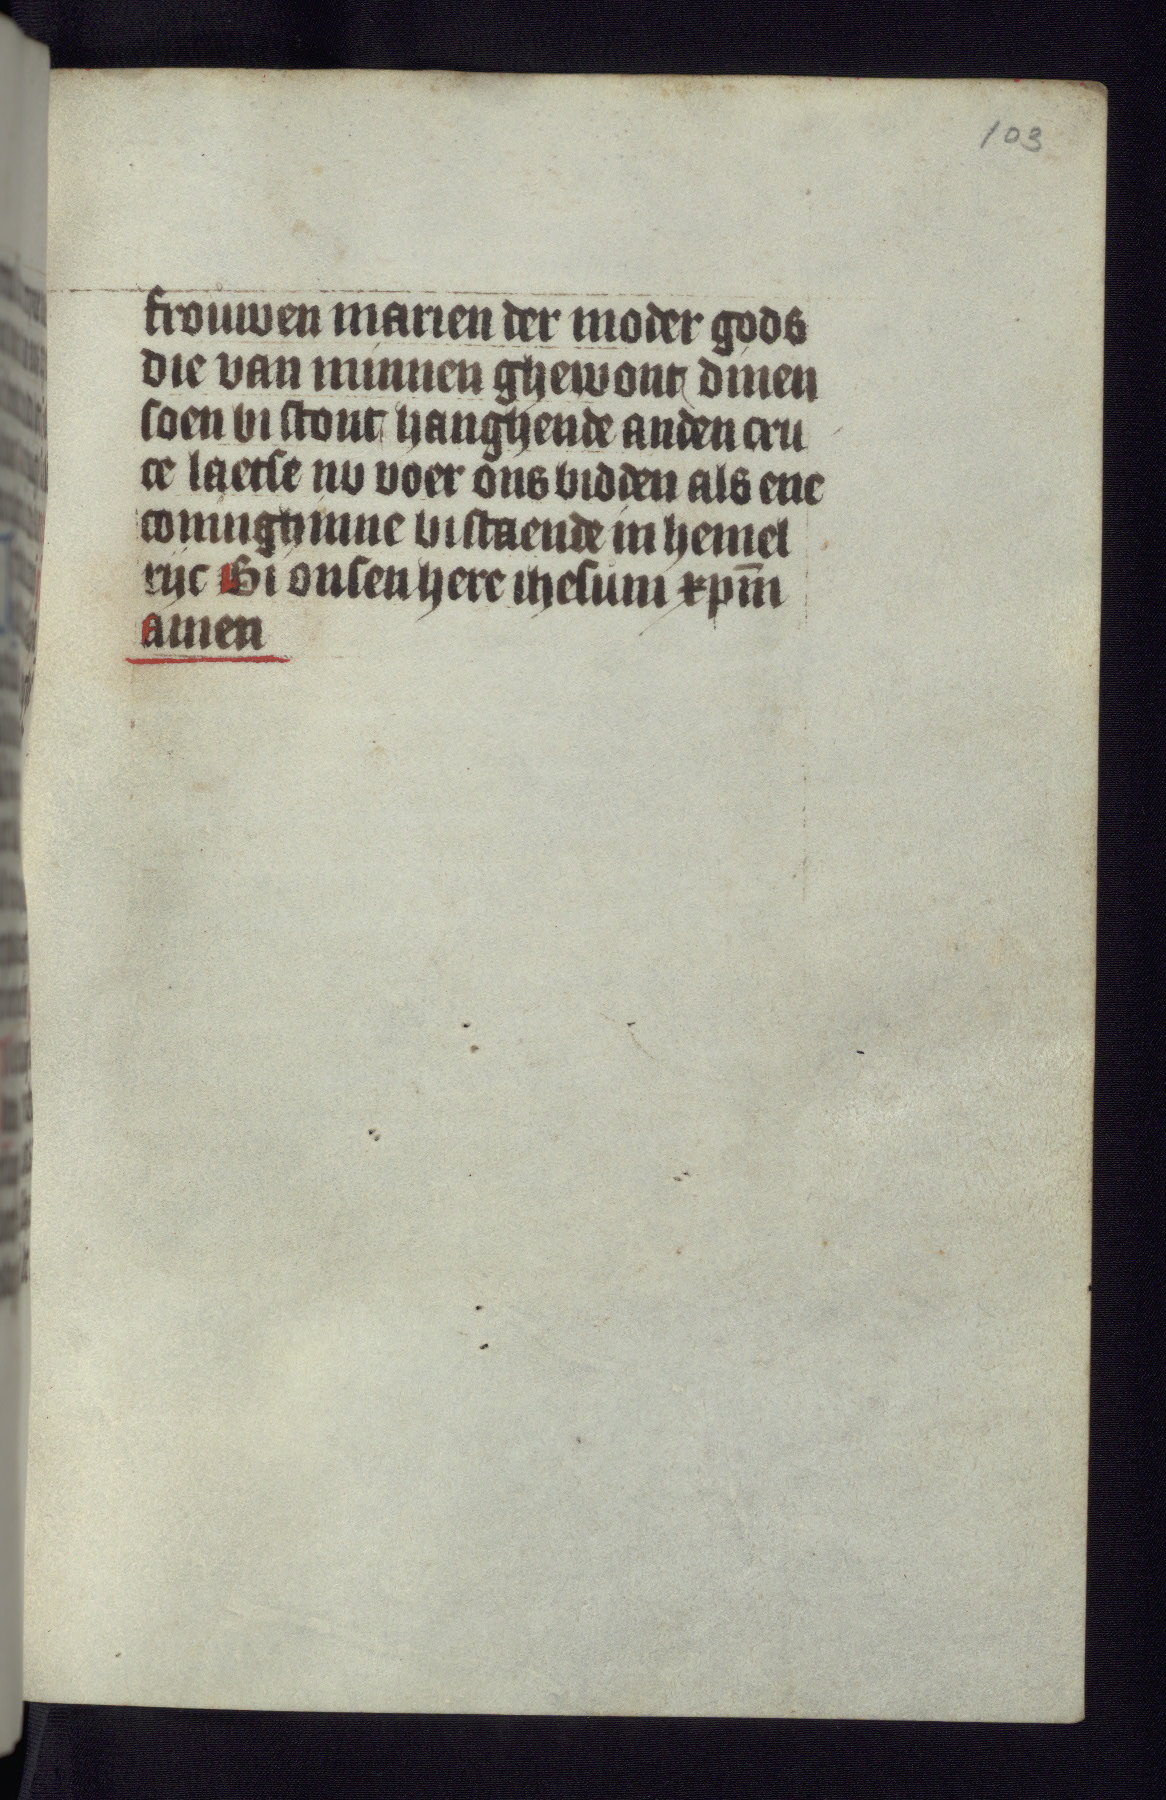 103
frouwen marien der moder gods
die van minnen ghewont dinen
soen bi stont hanghende anden cru
ce laetse nv voer ons bidden als ene
coninghinne bi staende in hemel
rijc Bi onsen here ihesum xpm̄
amen